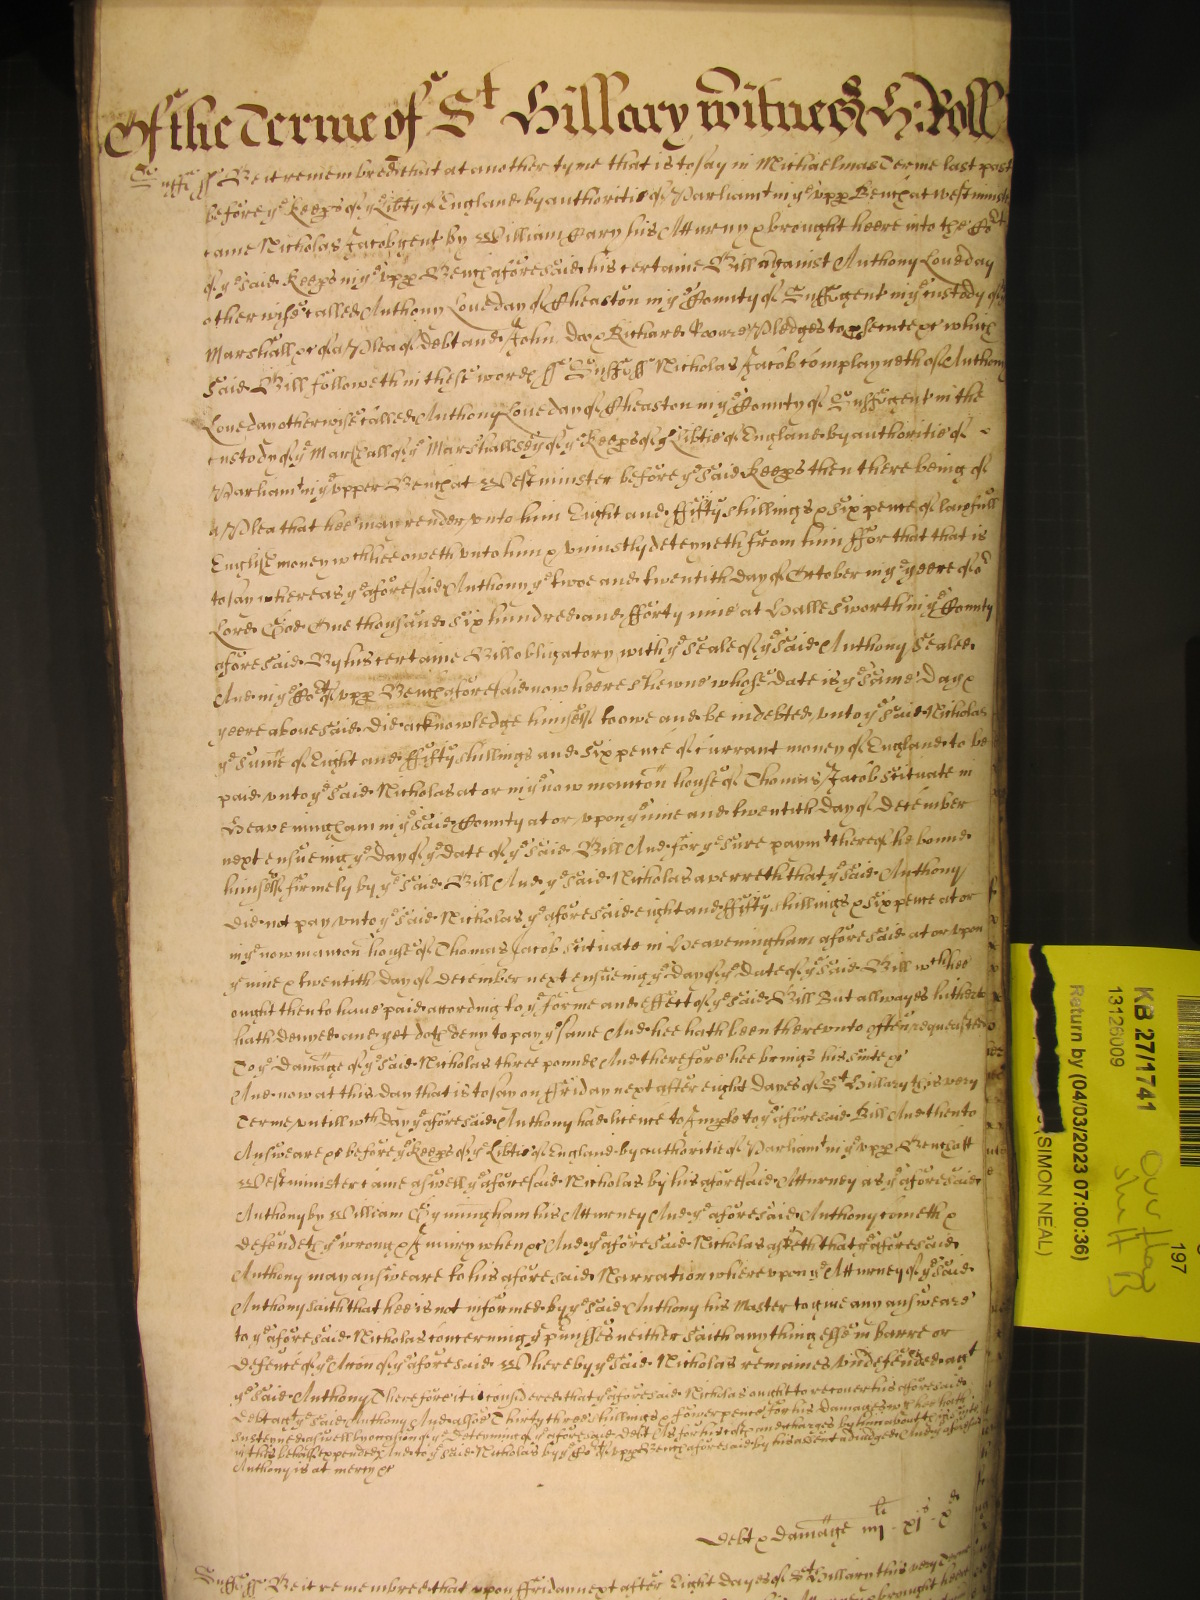 Of the Terme of St Hillary witnes H: Roll
Suff ss Be it remembred that at another tyme that is to say in Michaelmas Terme last past
before ye Keeps of ye Libty of England by authoritie of Parliamt in ye upp Bench at Westminster
came Nicholas Jacob gent by William Gary his Atturny & brought heere into the Cort
of ye said Keeps in ye upp Bench aforesaid his certaine Bill against Anthony Loveday
otherwise called Anthony Loveday of Cheaston in ye County of Suff gent in ye custody of ye
Marshall &c of a Plea of debt and John Doo & Richard Roo are Pledges to psecute &c which
said Bill followeth in these words ss Suff ss Nicholas Jacob complayneth of Anthony
Loveday otherwise called Anthony Loveday of Cheaston in ye County of Suff gent in the
custody of ye Marshall of ye Marshallsey of ye Keeps of ye Libtie of England by authoritie of
Parliamt in ye upper Bench at Westminster before ye said Keeps then there being of
a Plea that hee may render unto him Eight and fifty shillings & six pence of lawfull
English money wch hee oweth unto him & uniustly deteyneth from him ffor that that is
to say whereas ye aforesaid Anthony ye twoe and twentith day of October in ye yeere of or
Lord God One thousand six hundred and fforty nine at Hallesworth in ye County
aforesaid By his certaine Bill obligatory with ye seale of ye said Anthony sealed
And in ye Cort of upp Bench aforesaid now heere shewne whose date is ye same day &
yeere abovesaid did acknowledge himself to owe and be indebted unto ye said Nicholas
ye sume of Eight and fifty shillings and six pence of currant money of England to be
paid unto ye said Nicholas at or in ye now mancon house of Thomas Jacob scituate in
Heaveningham in ye said County at or upon ye nine and twentith day of December
next ensueing ye day of ye date of ye said Bill And for ye sure paymt thereof he bound
himself firmely by ye said Bill And ye said Nicholas averreth that ye said Anthony
did not pay unto ye said Nicholas ye aforesaid eight and fifty shillings & six pence at or
in ye now mancon house of Thomas Jacob scituate in Heaveningham aforesaid at or upon
ye nine & twentith day of December next ensueing ye day of ye date of ye said Bill wch hee
ought then to have paid according to ye forme and effect of ye said Bill But allwayes hitherto
hath denyed and yet doth deny to pay ye same And hee hath been therevnto often requeasted
To ye damage of ye said Nicholas three pounds And therefore hee brings his suite &c
And now at this day that is to say on ffriday next after eight dayes of St Hillary this very
Terme untill wch day ye aforesaid Anthony had licence to Imple to ye aforesaid Bill And then to
Answeare &c before ye Keeps of ye Libtie of England by authoritie of Parliamt in ye upp Bench att
Westminster came aswell ye aforesaid Nicholas by his aforesaid Atturney as ye aforesaid
Anthony by William his Atturney And ye aforesaid Anthony cometh &
defendeth ye wrong & Iniury when &c And ye aforesaid Nicholas asketh that ye aforesaid
Anthony may answeare to his aforesaid Narration where upon ye Atturney of ye said
Anthony saith that hee is not informed by ye said Anthony his Master to give any answeare
to ye aforesaid Nicholas concerning ye pmisses neither saith any thing else in barre or
defence of ye Accon of ye aforesaid Whereby ye said Nicholas remaines undefended agt
ye said Anthony Therefore it is considered that ye aforesaid Nicholas ought to recover his aforesaid
debt agt ye said Anthony And allsoe Thirty three shillings & fower pence for his damages wch hee hath
susteyned aswell by occasion of ye Deteyning of ye aforesaid debt As for his costs and charges by him about his suite
in this behalf expended And to ye said Nicholas by ye Cort of upp Bench aforesaid by his assent adiudged And ye aforesaid
Anthony is at mercy &c
Debt & damage iiijli xjs xd
Suff ss Be it remembred that upon ffriday next after Eight dayes of St Hillary this very Terme
brought heere
KB 27/1741
13126009
Return by (04/03/2023 07:00:36)
(SIMON NEAL)
197